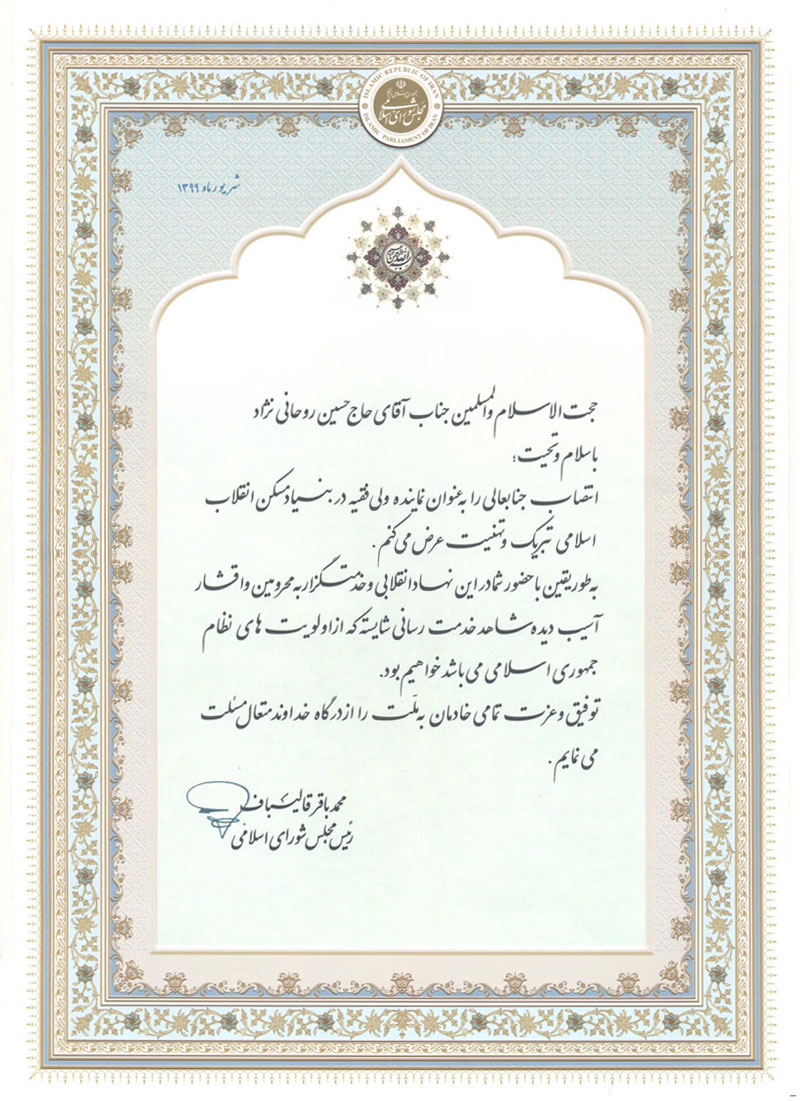 ISLAMIC REPUBLIC OF IRAN
جمهوری اسلامی ایران
مجلس شورای اسلامی
ISLAMIC PARLIAMENT OF IRAN
شهریور ماه ۱۳۹۹
حجت الاسلام والمسلمین جناب آقای حاج حسین روحانی نژاد
با سلام و تحیت؛
انتصاب جنابعالی را به عنوان نماینده ولی فقیه در بنیاد مسکن انقلاب
اسلامی تبریک و تهنیت عرض می کنم.
به طور یقین با حضور شما در این نهاد انقلابی و خدمتگزار به محرومین و اقشار
آسیب دیده شاهد خدمت رسانی شایسته که از اولویت های نظام
جمهوری اسلامی می باشد خواهیم بود.
توفیق و عزت تمامی خادمان به ملّت را از درگاه خداوند متعال مسئلت
می نمایم.
محمد باقر قالیباف
رئیس مجلس شورای اسلامی